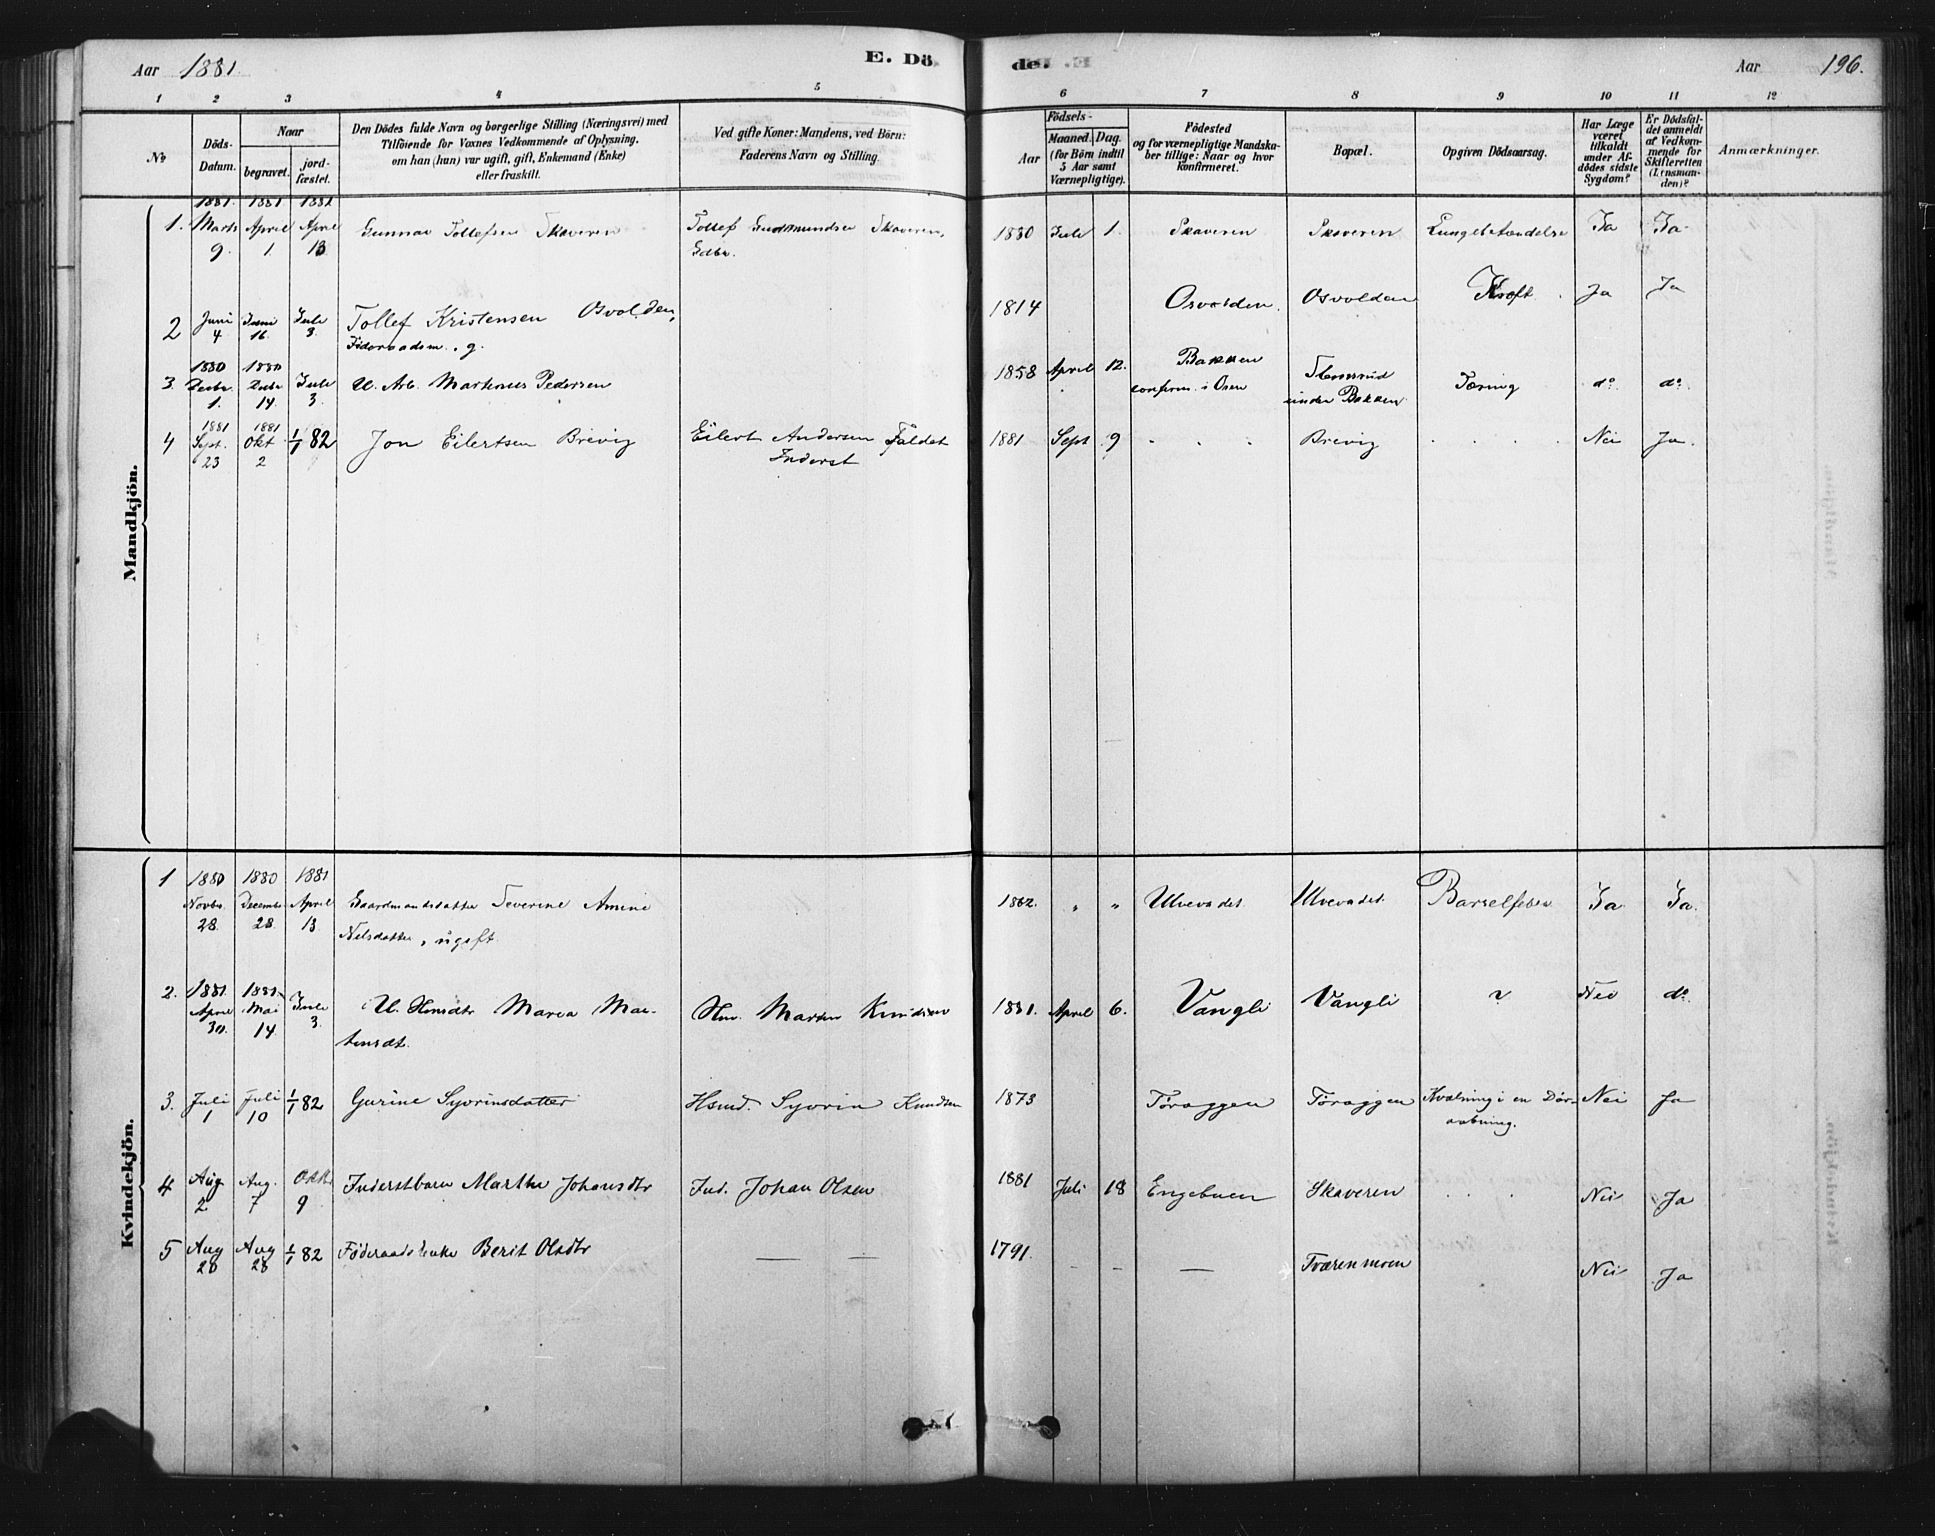 Aar 1881. E. Dö de. Aar 196.
1 2 3 4 5 6 7 8 9 10 11 12
No
Döds-Datum.
Naar
begravet.
jord-fæstet.
Den Dödes fulde Navn og borgerlige Stilling (Næringsvei) med
Tilföiende for Voxnes Vedkommende af Oplysning.
om han (hun) var ugift, gift, Enkemand (Enke)
eller fraskilt.
Ved gifte Koner: Mandens, ved Börn:
Faderens Navn og Stilling.
Födsels-
Aar
Maaned. Dag.
(for Börn indtil
5 Aar samt
Værnepligtige).
Födested
og for værnepligtige Mandska-
ber tillige: Naar og hvor
konfirmeret.
Bopæl.
Opgiven Dödsaarsag.
Har Læge
været
tilkaldt
under Af-
dödes sidste
Sygdom?
Er Dödsfal-
det anmeldt
af Vedkom-
mende for
Skifteretten
(Lensman-
den)?
Anmærkninger.
Mandkjön.
1881. 1881 1881
1. Marts April April Gunnar Tollefsen Skaveren Tollef Gudmundsen Skaveren, 1880 Juli 1. Skaveren Skaveren Lungebetændelse Ja Ja
9. 1. 13 Gdbr.
2 Juni Juni Juli Tollef Kristensen Osvolden, 1814 Osvolden. Osvolden Ja Ja
4 16. 3. Föderaadsm. g.
1880 1880
3. Decbr. Decbr Juli U. Arb. Markus Pedersen 1858 April 12. Bakken
1. 14. 3. confirm. i Osen under Bakken Tæring do. do.
1881 1881
4 Sept. Okt 1/1 82 Jon Eilertsen Brevig Eilert Andersen Faldet 1881 Sept 9 Brevig Nei Ja.
23 2 Inderst
Kvindekjön.
1 1880 1880 1881
Novbr. December April Gaardmandsdatter Severine Amine 1862. " " Ulvevadet. Ulvevadet. Barselfeber Ja Ja.
28. 28. 13 Nilsdatter, ugift.
2. 1881. 1881. Juli U. Hmsdtr Maren Mar- Hm. Marten Knudsen 1881. April 6. Vangli Vangli ? Nei do.
April 30. Mai 14. 3. tensdt.
3. Juli Juli 1/1 82 Gurine Syvrinsdatter Hsmd. Syvrin Knudsen 1873 Töraggen Töraggen Kvælning i en Dör- Nei Ja
1 10 aabning.
4 Aug Aug. Oktbr Inderstbarn Marthe Johansdtr Ind. Johan Olsen 1881 Juli 18 Skaveren Nei Ja
2 7 9
5 Aug Aug 1/1 82 Föderaadsenke Berit Olsdtr — — 1791. - - — Tværenmoen Nei Ja
20 28